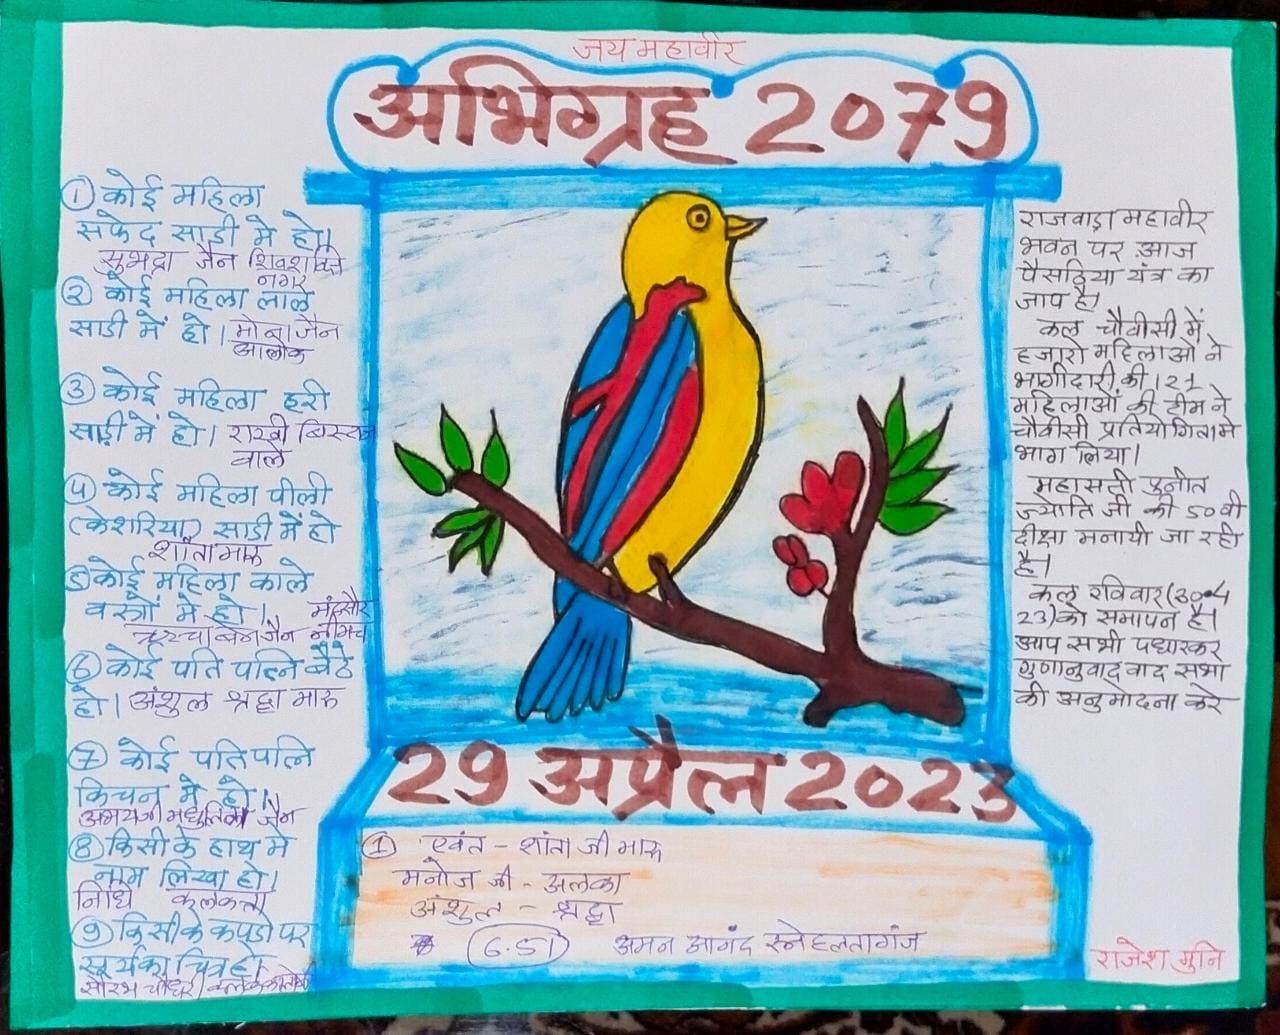 जय महावीर
अभिग्रह 2079
① कोई महिला
सफेद साडी मे हो।
सुभद्रा जैन शिवशक्ति
नगर
② कोई महिला लाल
साडी में हो। मोना जैन
आलोक
③ कोई महिला हरी
साड़ी में हो। राखी
वाले
④ कोई महिला पीली
(केशरिया) साडी में हो
शांता मारू
⑤ कोई महिला काले
वस्त्रों मे हो। मंदसौर
जैन नीमच
⑥ कोई पति पत्नि बैठे
हो। अंशुल श्रद्धा मारू
⑦ कोई पति पत्नि
किचन मे हो।
अभयजी जैन
⑧ किसी के हाथ मे
नाम लिखा हो।
निधि कलकत्ता
⑨ किसी के कपडो पर
सूर्य का चित्र हो
सौरभ चौधरी
राजवाड़ा महावीर
भवन पर आज
पैसठिया यंत्र का
जाप है।
कल चौवीसी में
हजारो महिलाओं ने
भागीदारी की। 21
महिलाओं की टीम ने
चौवीसी प्रतियोगिता मे
भाग लिया।
महासती पुनीत
ज्योति जी की 50 वी
दीक्षा मनायी जा रही
है।
कल रविवार (30-4
23) को समापन है।
आप सभी पधारकर
गुणानुवाद वाद सभा
की अनुमोदना करे
29 अप्रैल 2023
① एवंत - शांता जी मारू
मनोज जी - अलका
अंशुल - श्रद्धा
6.51 अमन आनंद स्नेहलतागंज
राजेश मुनि